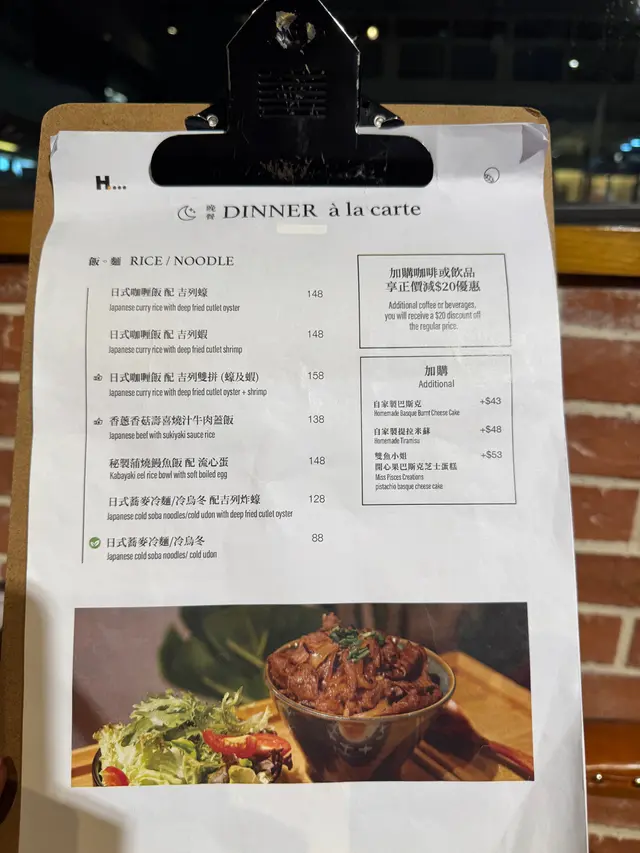 H....
晚餐 DINNER à la carte
飯。麵 RICE / NOODLE
日式咖喱飯 配 吉列蠔 148
Japanese curry rice with deep fried cutlet oyster
日式咖喱飯 配 吉列蝦 148
Japanese curry rice with deep fried cutlet shrimp
日式咖喱飯 配 吉列雙拼 (蠔及蝦) 158
Japanese curry rice with deep fried cutlet oyster + shrimp
香蔥香菇壽喜燒汁牛肉蓋飯 138
Japanese beef with sukiyaki sauce rice
秘製蒲燒鰻魚飯 配 流心蛋 148
Kabayaki eel rice bowl with soft boiled egg
日式蕎麥冷麵/冷烏冬 配吉列炸蠔 128
Japanese cold soba noodles/cold udon with deep fried cutlet oyster
日式蕎麥冷麵/冷烏冬 88
Japanese cold soba noodles/ cold udon
加購咖啡或飲品
享正價減$20優惠
Additional coffee or beverages,
you will receive a $20 discount off
the regular price.
加購
Additional
自家製巴斯克 +$43
Homemade Basque Burnt Cheese Cake
自家製提拉米蘇 +$48
Homemade Tiramisu
雙魚小姐 +$53
開心果巴斯克芝士蛋糕
Miss Pisces Creations
pistachio basque cheese cake